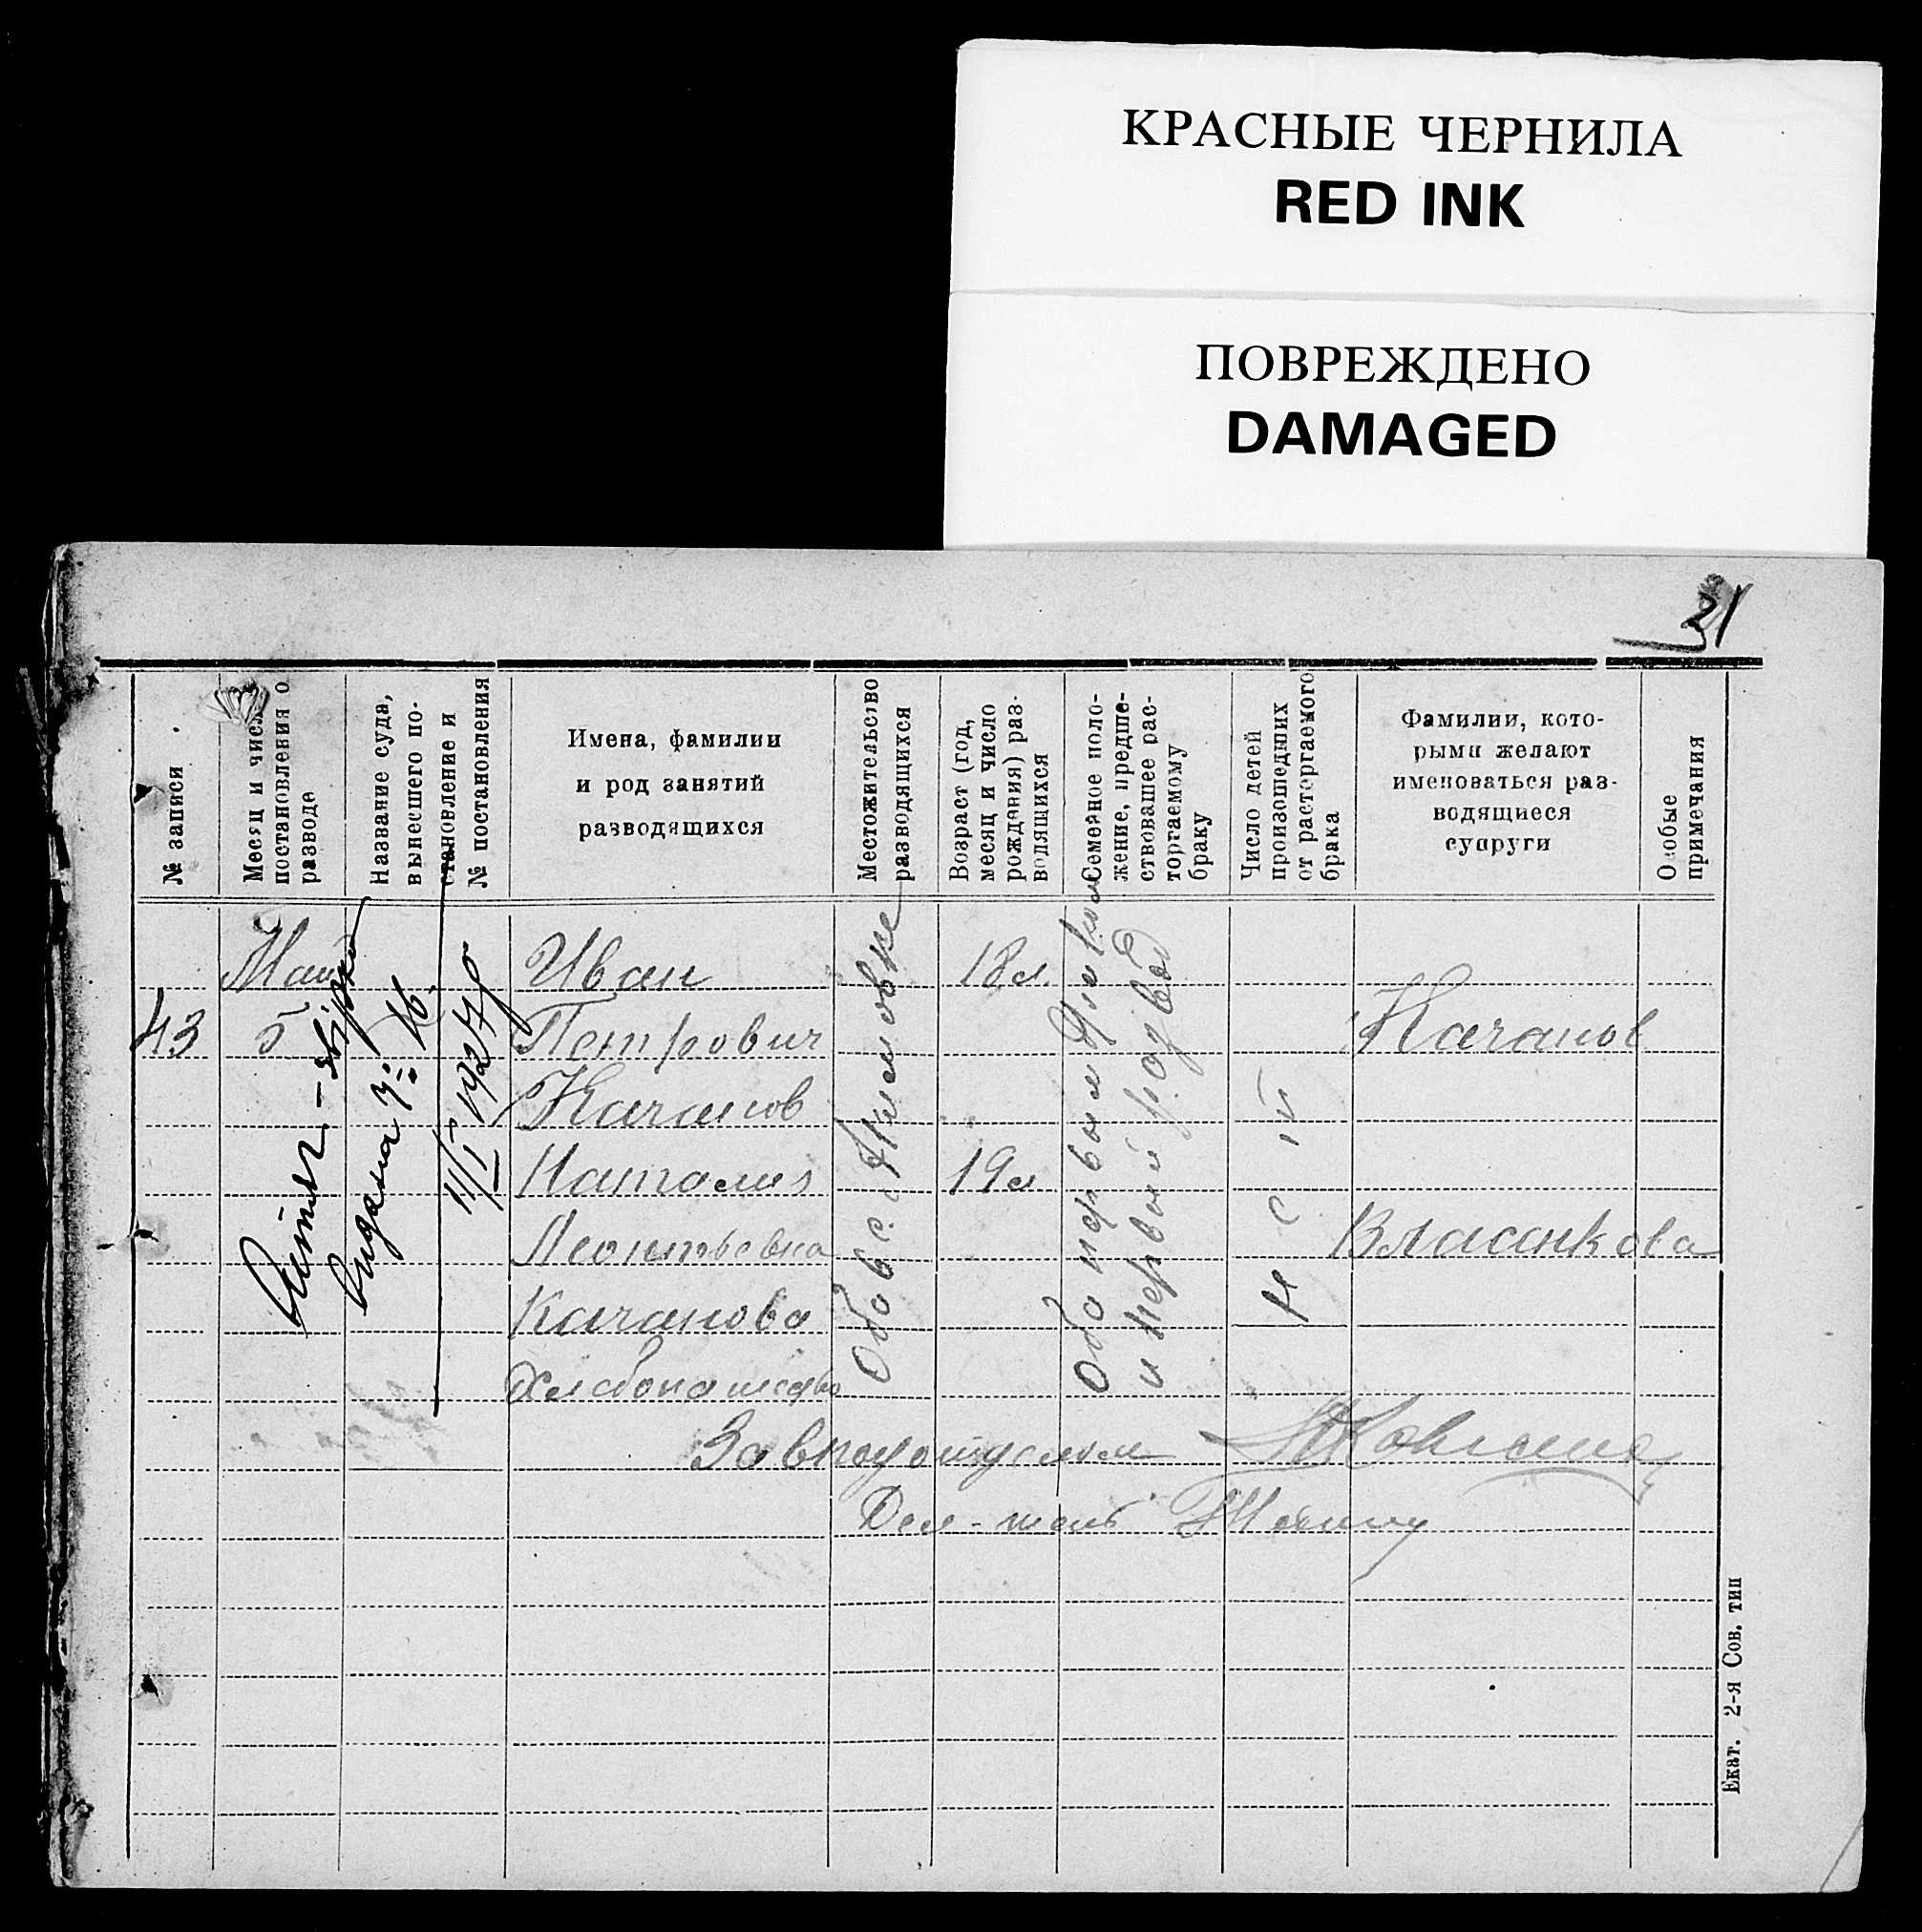 КРАСНЫЕ ЧЕРНИЛА
RED INK
ПОВРЕЖДЕНО
DAMAGED
21
№ записи
Месяц и числ
постановления о
разводе
Название суда,
вынесшего по-
становление и
№ постановления
Имена, фамилии
и род занятий
разводящихся
Местожительство
разводящихся
Возраст (год,
месяц и число
рождения) раз-
водящихся
Семейное поло-
жение, предше-
ствовавшее рас-
торгаемому
браку
Число детей
происшедших
от расторгаемого
брака
Фамилии, кото-
рыми желают
именоваться раз-
водящиеся
супруги
Особые
примечания
43
Май
5
Выдана
11/I 1927 г
Иван
Петрович
Качанов
Наталия
Леонтьевна
Качанова
Хлебопашество
Оба в с. Акимовке
18 л.
19 л
Оба первым браком
и первый развод
Нет
Качанов
Власенкова
Завподотделом
Дел-тель
Екат. 2-я Сов. тип